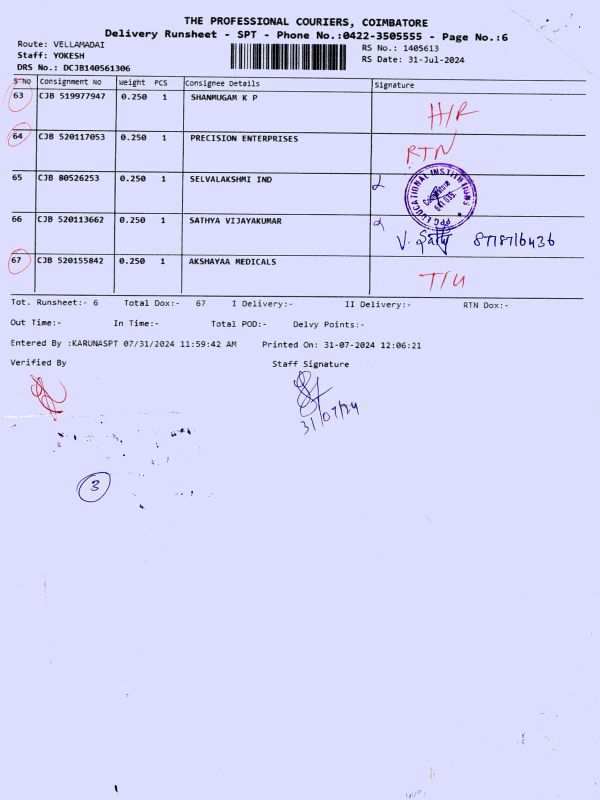 THE PROFESSIONAL COURIERS, COIMBATORE
Delivery Runsheet - SPT - Phone No.:0422-3505555 - Page No.:6
Route: VELLAMADAI
Staff: YOKESH
DRS No.: DCJB140561306
RS No.: 1405613
RS Date: 31-Jul-2024
S No Consignment No Weight PCS Consignee Details Signature
63 CJB 519977947 0.250 1 SHANMUGAM K P H/R
64 CJB 520117053 0.250 1 PRECISION ENTERPRISES RTN
65 CJB 80526253 0.250 1 SELVALAKSHMI IND
PPG EDUCATIONAL INSTITUTIONS
66 CJB 520113662 0.250 1 SATHYA VIJAYAKUMAR
67 CJB 520155842 0.250 1 AKSHAYAA MEDICALS T/U
Tot. Runsheet:- 6 Total Dox:- 67 I Delivery:- II Delivery:- RTN Dox:-
Out Time:- In Time:- Total POD:- Delvy Points:-
Entered By :KARUNASPT 07/31/2024 11:59:42 AM Printed On: 31-07-2024 12:06:21
Verified By Staff Signature
31/07/24
3